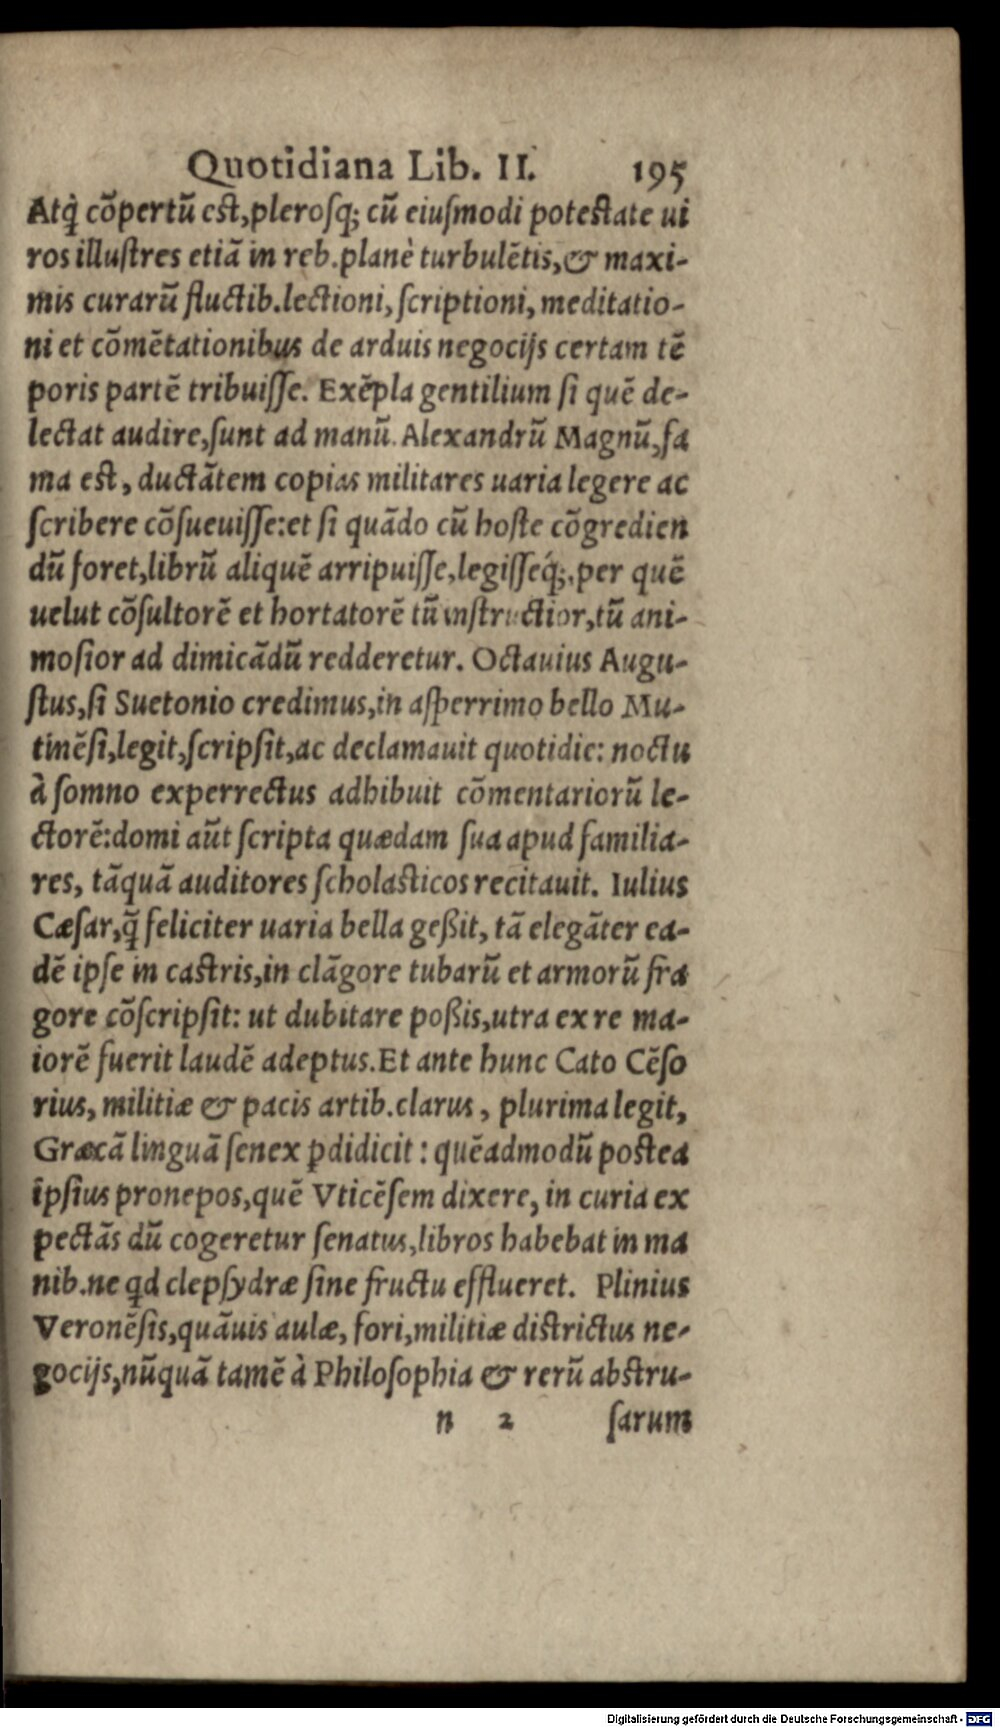 Quotidiana Lib. II. 195
Atq̃ cõpertũ est, plerosq; cũ eiuſmodi poteſtate ui
ros illuſtres etiã in reb. planè turbulẽtis, & maxi-
mis curarũ fluctib. lectioni, ſcriptioni, meditatio-
ni et cõmẽtationibus de arduis negocijs certam tẽ
poris partẽ tribuiſſe. Exẽpla gentilium ſi quẽ de-
lectat audire, ſunt ad manũ. Alexandrũ Magnũ, fa
ma eſt, ductãtem copias militares uaria legere ac
ſcribere cõſueuiſſe: et ſi quãdo cũ hoſte cõgredien
dũ foret, librũ aliquẽ arripuiſſe, legiſſeq́;, per quẽ
uelut cõſultorẽ et hortatorẽ tũ inſtructior, tũ ani-
moſior ad dimicãdũ redderetur. Octauius Augu-
ſtus, ſi Suetonio credimus, in aſperrimo bello Mu-
tinẽſi, legit, ſcripſit, ac declamauit quotidie: noctu
à ſomno experrectus adhibuit cõmentariorũ le-
ctorẽ: domi aũt ſcripta quædam ſua apud familia-
res, tãquã auditores ſcholaſticos recitauit. Iulius
Cæſar, q̃ feliciter uaria bella geßit, tã elegãter ea-
dẽ ipſe in caſtris, in clãgore tubarũ et armorũ fra
gore cõſcripſit: ut dubitare poßis, utra ex re ma-
iorẽ fuerit laudẽ adeptus. Et ante hunc Cato Cẽſo
rius, militiæ & pacis artib. clarus, plurima legit,
Græcã linguã ſenex p̱didicit: quẽadmodũ postea
ipſius pronepos, quẽ Vticẽſem dixere, in curia ex
pectãs dũ cogeretur ſenatus, libros habebat in ma
nib. ne qd clepſydræ ſine fructu efflueret. Plinius
Veronẽſis, quãuis aulæ, fori, militiæ diſtrictus ne-
gocijs, nũquã tamẽ à Philoſophia & rerũ abſtru-
n 2 ſarum
Digitalisierung gefördert durch die Deutsche Forschungsgemeinschaft - DFG